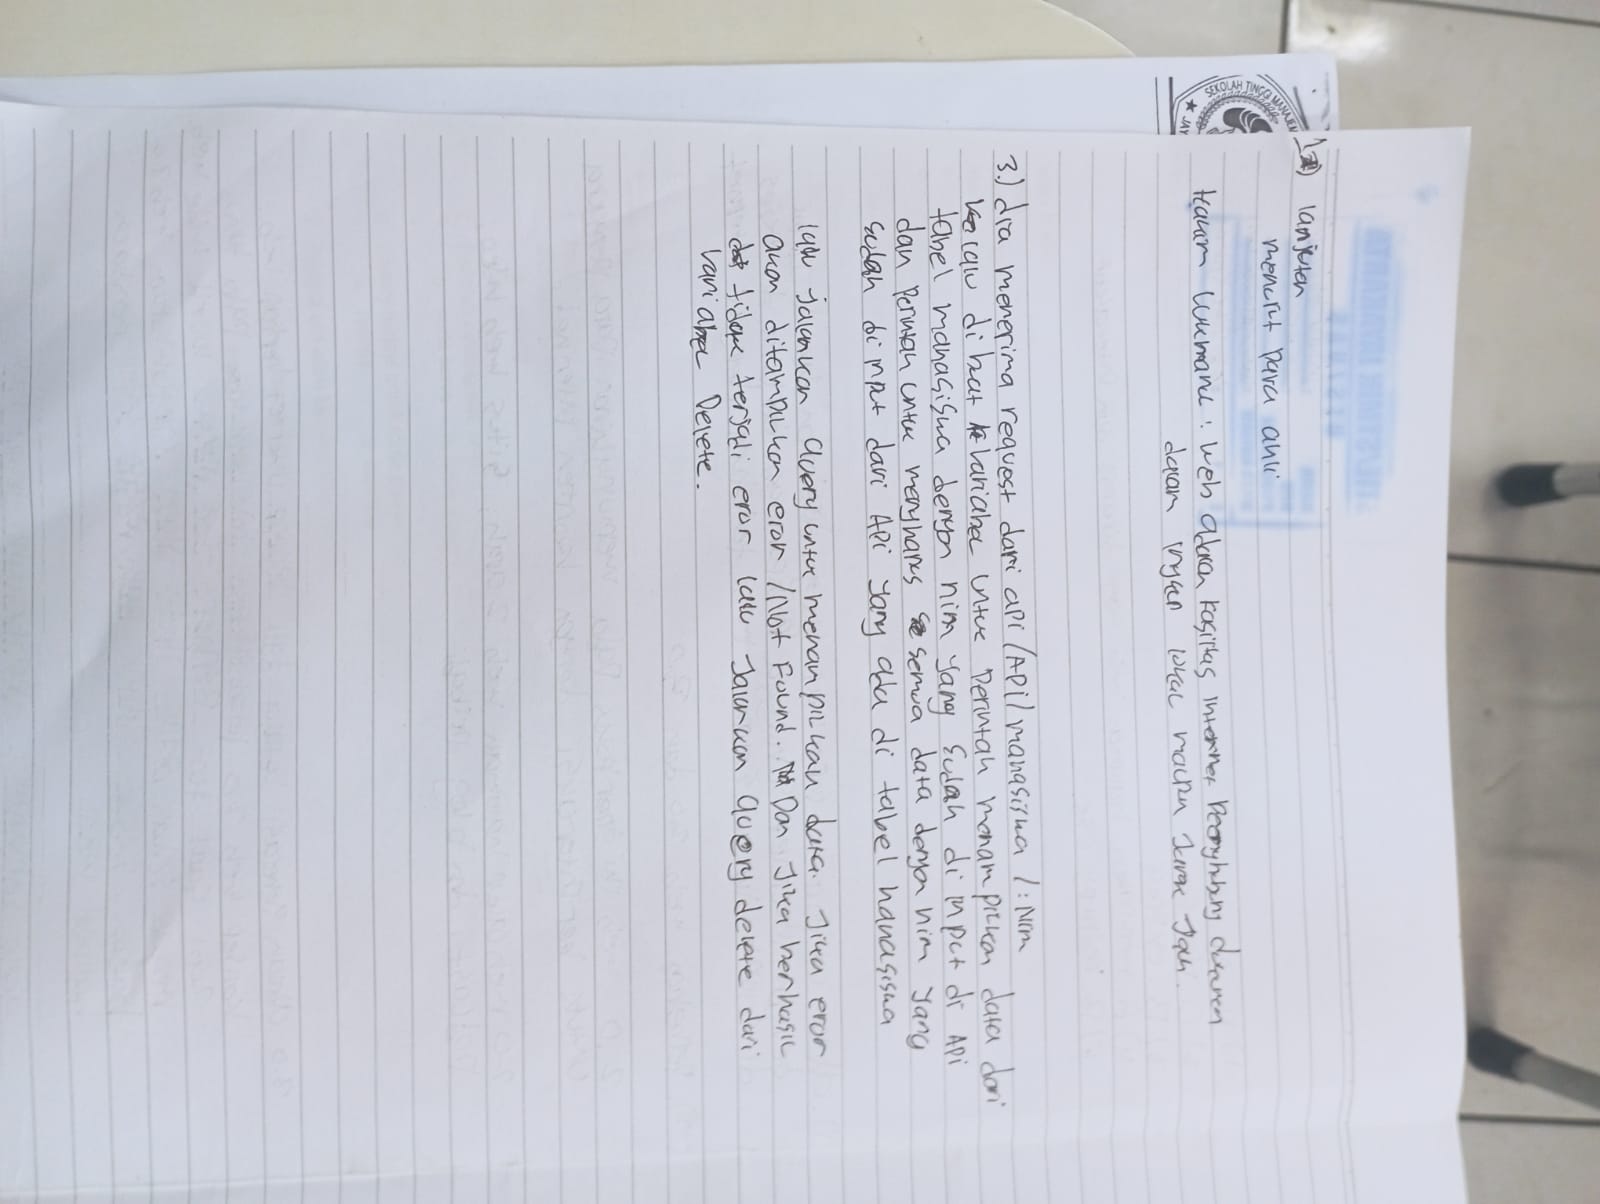 SEKOLAH TINGGI MANAJEM
1) lanjutan
menurut para ahli
Hakim Lukmanul : web adalah fasilitas internet penghubung dokumen
dalam lingkup lokal maupun jarak jauh.
3.) dia menerima request dari api /API/mahasiswa/:Nim
lalu dibuat Variabel untuk Perintah menampilkan data dari
tabel mahasiswa dengan nim yang sudah di input di API
dan Perintah untuk menghapus semua data dengan nim yang
sudah di input dari API yang ada di tabel mahasiswa
lalu jalankan Query untuk menampilkan data. Jika eror
akan ditampilkan eror /Not Found. Dan Jika berhasil
tidak terjadi eror lalu Jalankan Query delete dari
Variabel Delete.